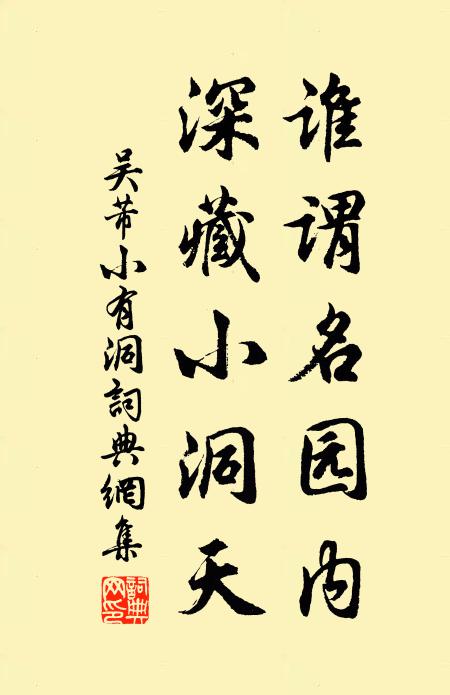 谁谓名园内
深藏小洞天
吴芾小有洞詞典網集
詞典网印